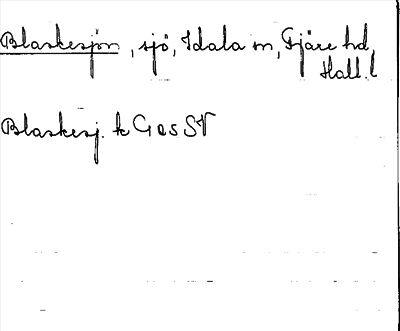 Blaskesjön, sjö, Idala sn, Fjäre hd,
Hall. l
Blaskesj. k G Ö s SV